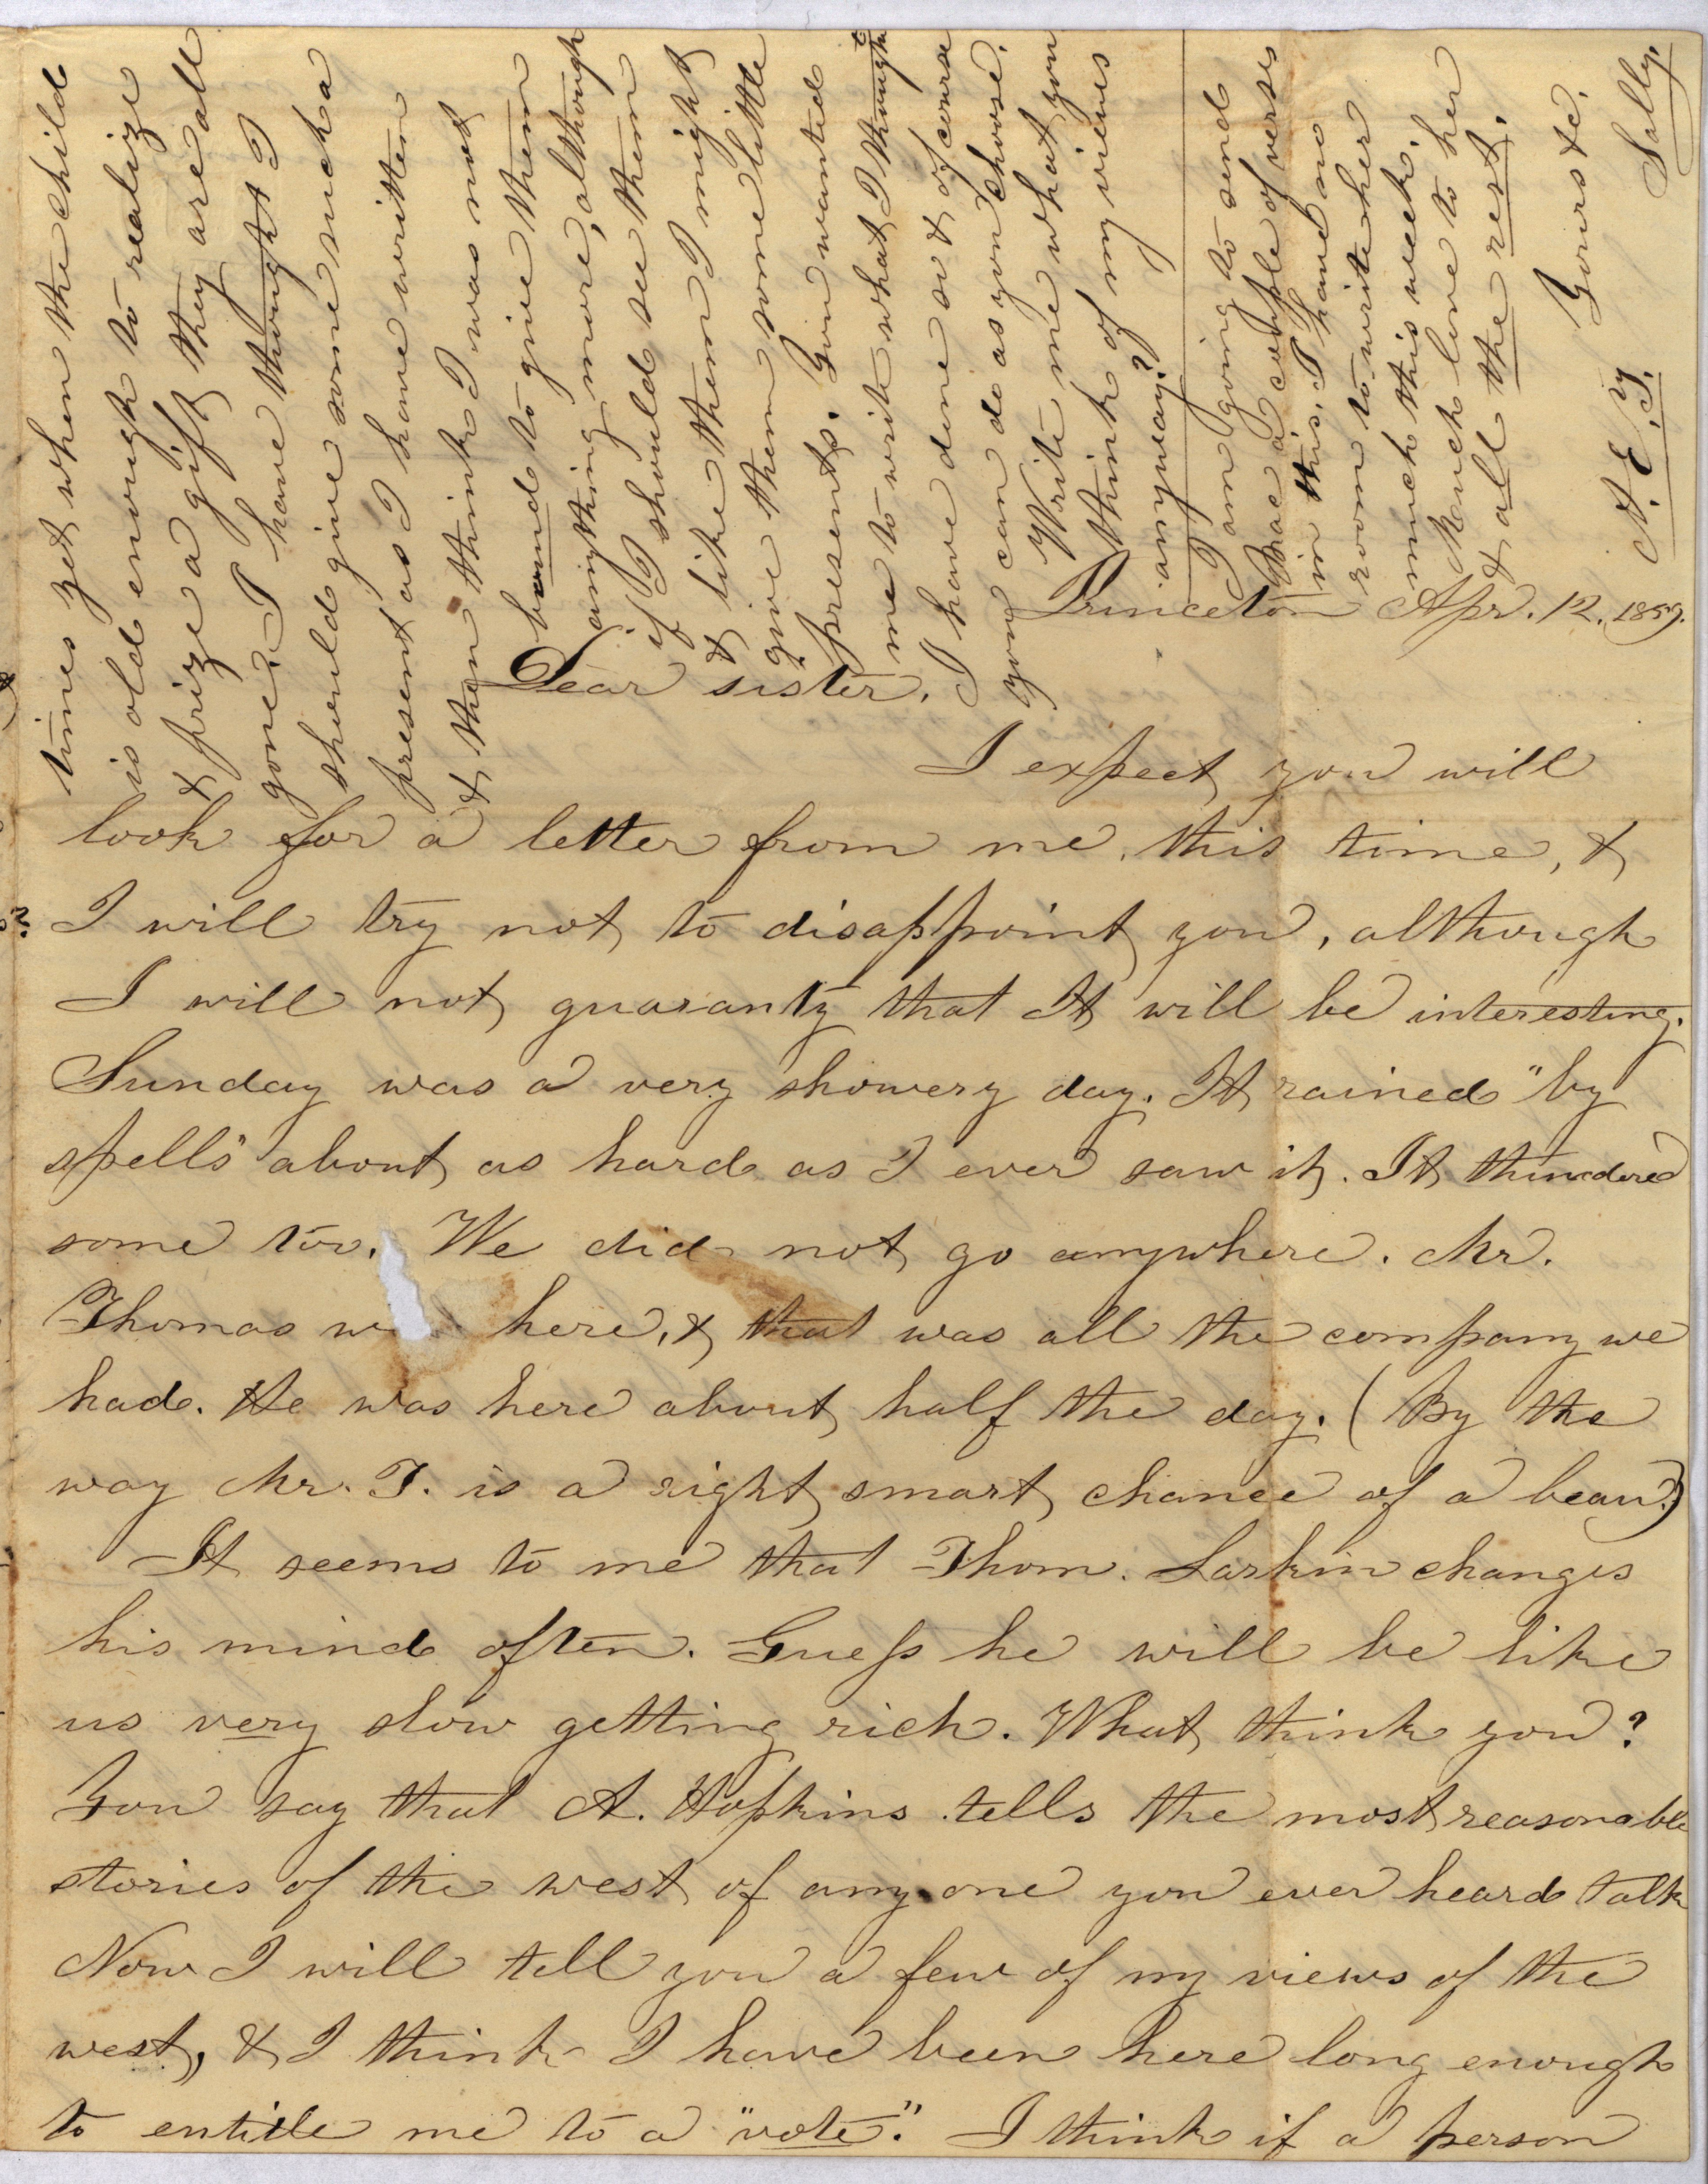 Princeton Apr. 12. 1859.
Dear sister.
I expect you will
look for a letter from me, this time, &
I will try not to disappoint you, although
I will not guaranty that It will be interesting.
Sunday was a very showery day. It rained "by
spells" about as hard as I ever saw it. It thundered
some too. We did not go anywhere. Mr.
Thomas w here, & that was all the company we
had. He was here about half the day. (By the
way Mr. T. is a right smart chance of a beau.)
It seems to me that Thom. Larkin changes
his mind often. Guess he will be like
us very slow getting rich. What think you?
You say that A. Hopkins tells the most reasonable
stories of the west of any one you ever heard talk
Now I will tell you a few of my views of the
west, & I think I have been here long enough
to entitle me to a "vote". I think if a person
times yet when the child
is old enough to realize
& prize a gift they are all
gone. I have thought I
should give some such a
present as I have written
& then think I was not
bound to give them
anything more, although
if I should see them
& like them I might
give them some little
presents. You wanted
me to write what I thought
I have done so & of course
you can do as you choose.
Write me what you
think of my views
anyway?
I am going to send
a couple of verses
in this. I have no
room to write her
much this week.
Much love to her
& all the rest.
Yours &c.
N. E. Y.
Sally.